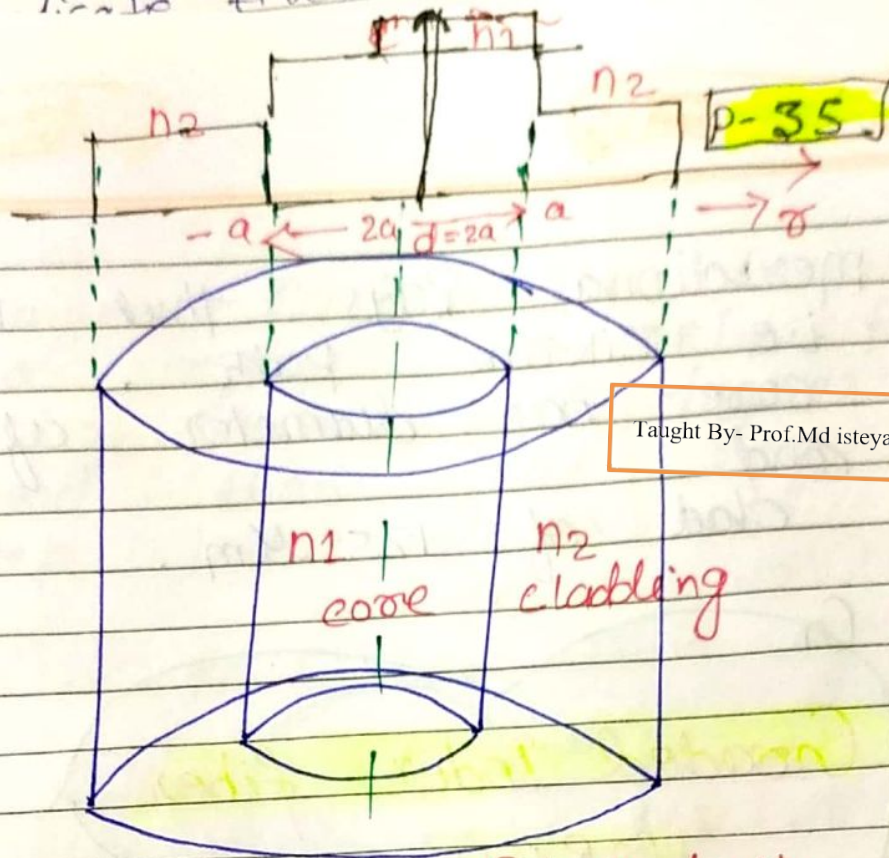 n1
n2
n2
P-35
-a
2a
d=2a
a
r
Taught By- Prof.Md isteya
n1
n2
core
cladding